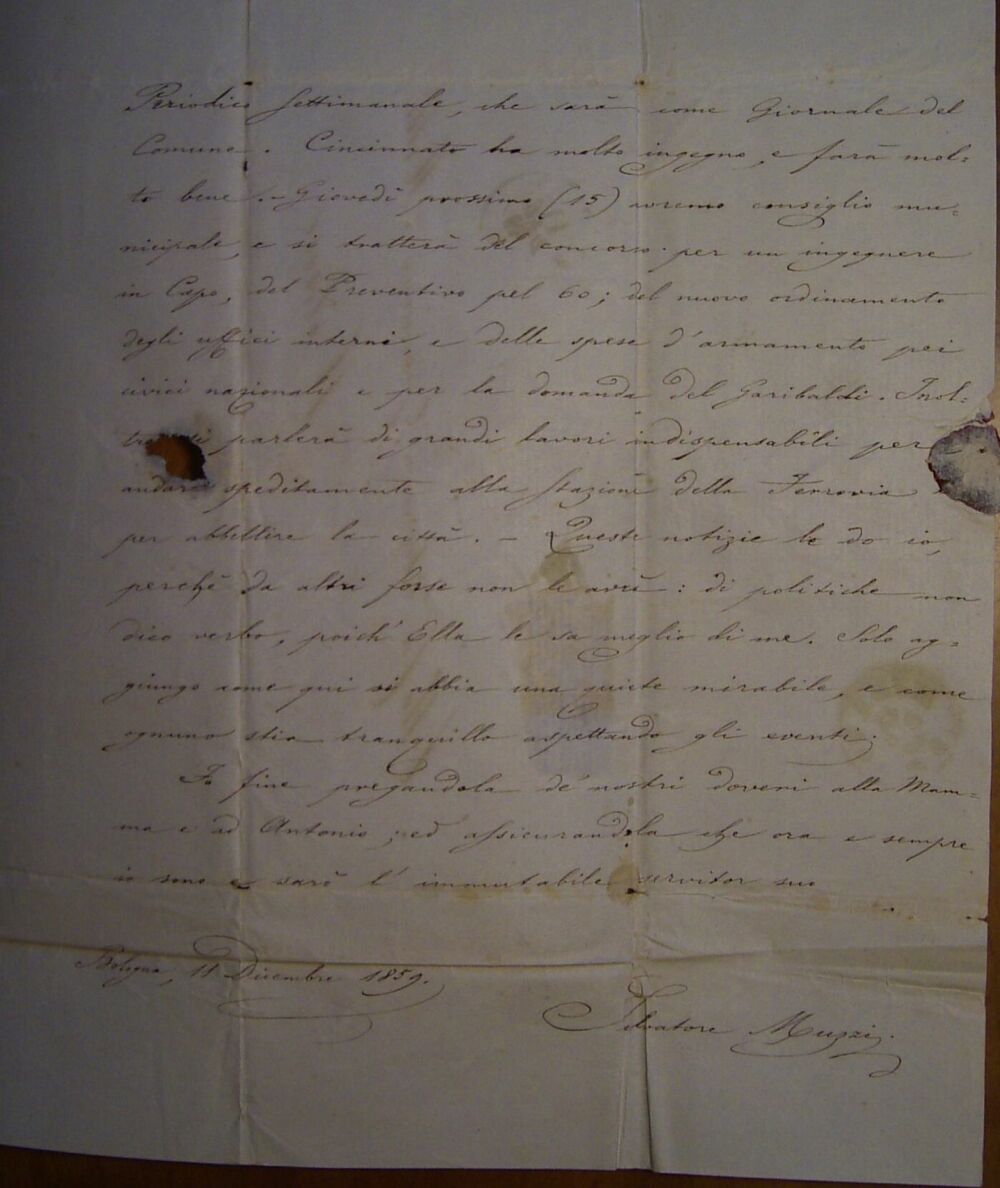 Periodico settimanale, che sarà come Giornale del
Comune. Cincinnato ha molto ingegno, e farà mol-
to bene. - Giovedì prossimo (15) avremo consiglio mu-
nicipale, e si tratterà del concorso per un ingegnere
in Capo, del Preventivo pel 60; del nuovo ordinamento
degli uffici interni, e delle spese d'armamento pei
civici nazionali e per la domanda del Garibaldi. Inol-
tre si parlerà di grandi lavori indispensabili per
andare speditamente alla stazione della Ferrovia
per abbellire la città. - Queste notizie le do io,
perchè da altri forse non le avrà: di politiche non
dico verbo, poich' Ella le sa meglio di me. Solo ag-
giungo come qui si abbia una quiete mirabile, e come
ognuno stia tranquillo aspettando gli eventi.
Fo fine pregandola de' nostri doveri alla Mam-
ma e ad Antonio; ed assicurandola che ora e sempre
io sono e sarò l' immutabile servitor suo
Bologna, 11 Dicembre 1859.
Salvatore Muzzi.